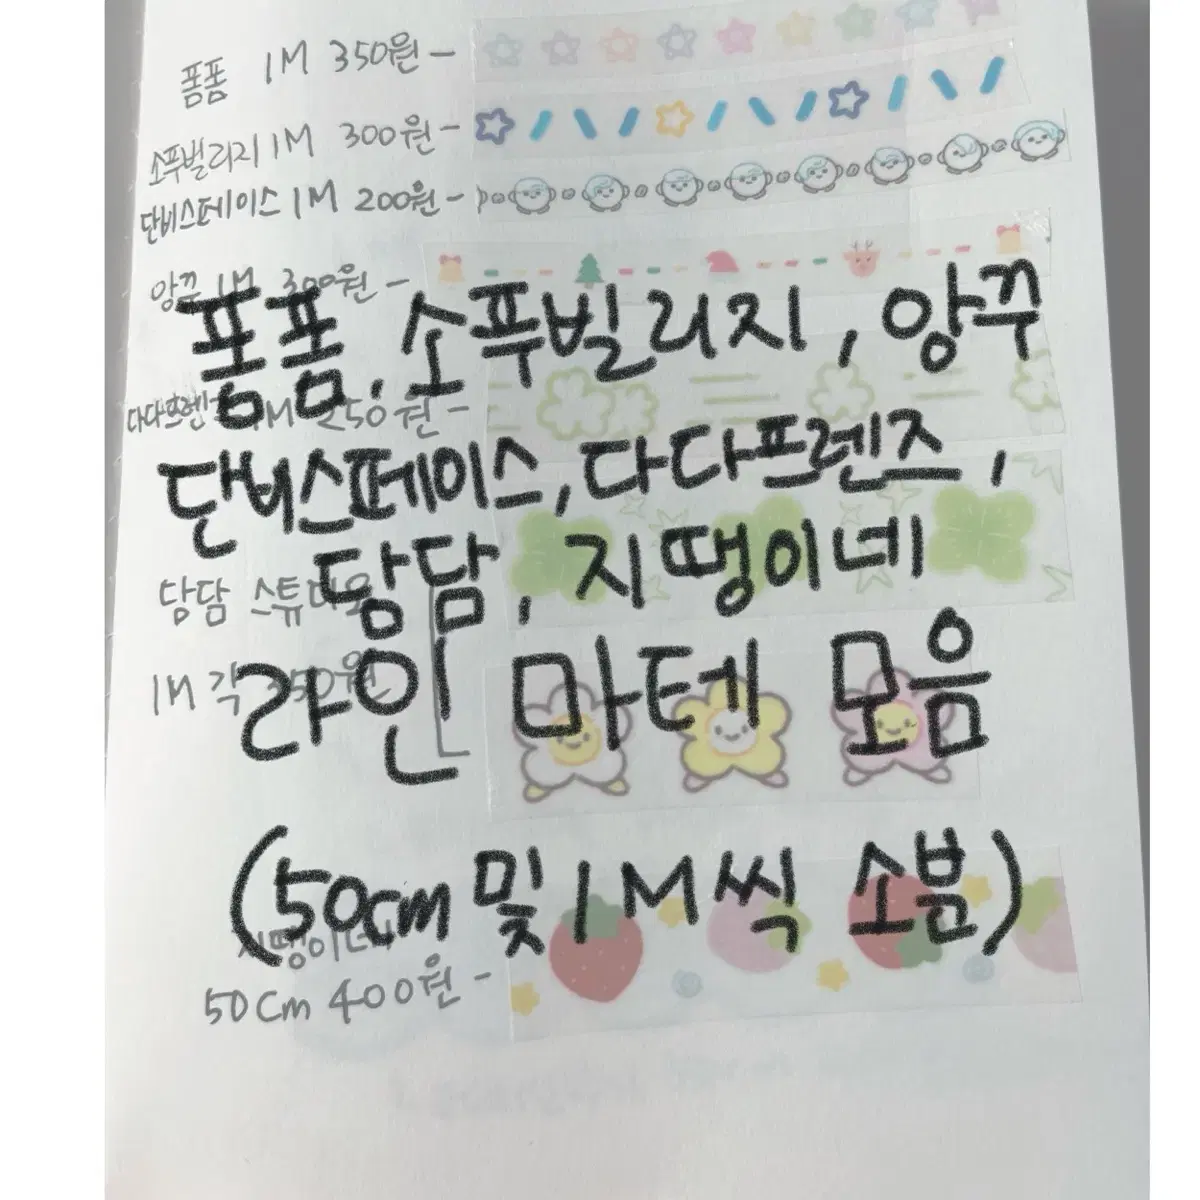 퐁퐁 1M 350원 -
소푸빌리지 1M 300원 -
단비스페이스 1M 200원 -
앙꾸 1M 300원 -
퐁퐁, 소푸빌리지, 앙꾸
다다프렌즈 1M 250원 -
단비스페이스, 다다프렌즈,
당담, 지땡이네
당담 스튜디오
1M 각 350원
라인 마테 모음
(50cm 및 1M씩 소분)
지땡이네
50cm 400원 -